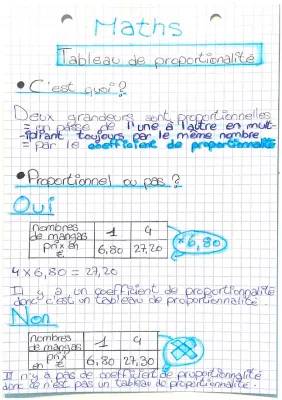 Maths
Tableau de proportionalité
• C'est quoi?
Deux grandeurs sont proportionnelles
= on passe de l'une à l'autre en mult-
ipliant toujours par le même nombre
= par le coefficient de proportionnalité
• Proportionnel ou pas ?
Oui
nombres de mangas 1 4
Prix en € 6,80 27,20
×6,80
4×6,80 = 27,20
Il y a un coefficient de proportionnalité
donc c'est un tableau de proportionnalité.
Non
nombres de mangas 1 4
prix en € 6,80 27,30
Il n'y a pas de coefficient de proportionnalité
donc ce n'est pas un tableau de proportionnalité.